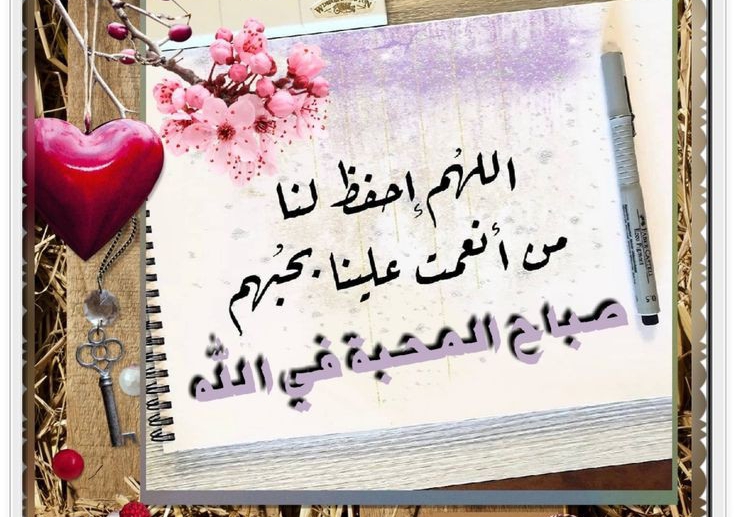 اللهُم إحفظ لنا
من أنعمت علينا بحبُهم
صباح المحبة في الله
0.5